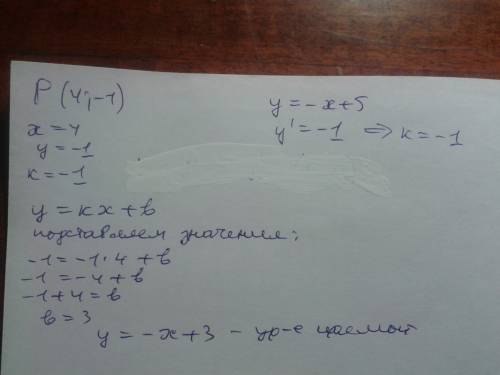 P (4; -1)
x = 4
y = -1
k = -1
y = -x+5
y' = -1 => k = -1
y = kx + b
подставляем значения:
-1 = -1·4 + b
-1 = -4 + b
-1+4 = b
b = 3
y = -x+3 - ур-е прямой